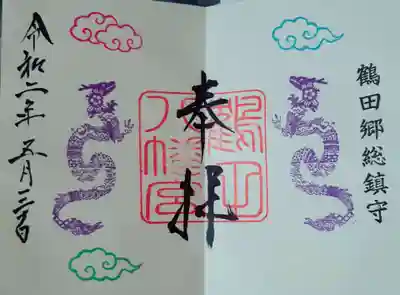 鶴田郷総鎮守
奉拝
令和二年五月三日